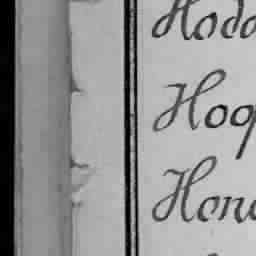 Hodo
Hoq
Hono